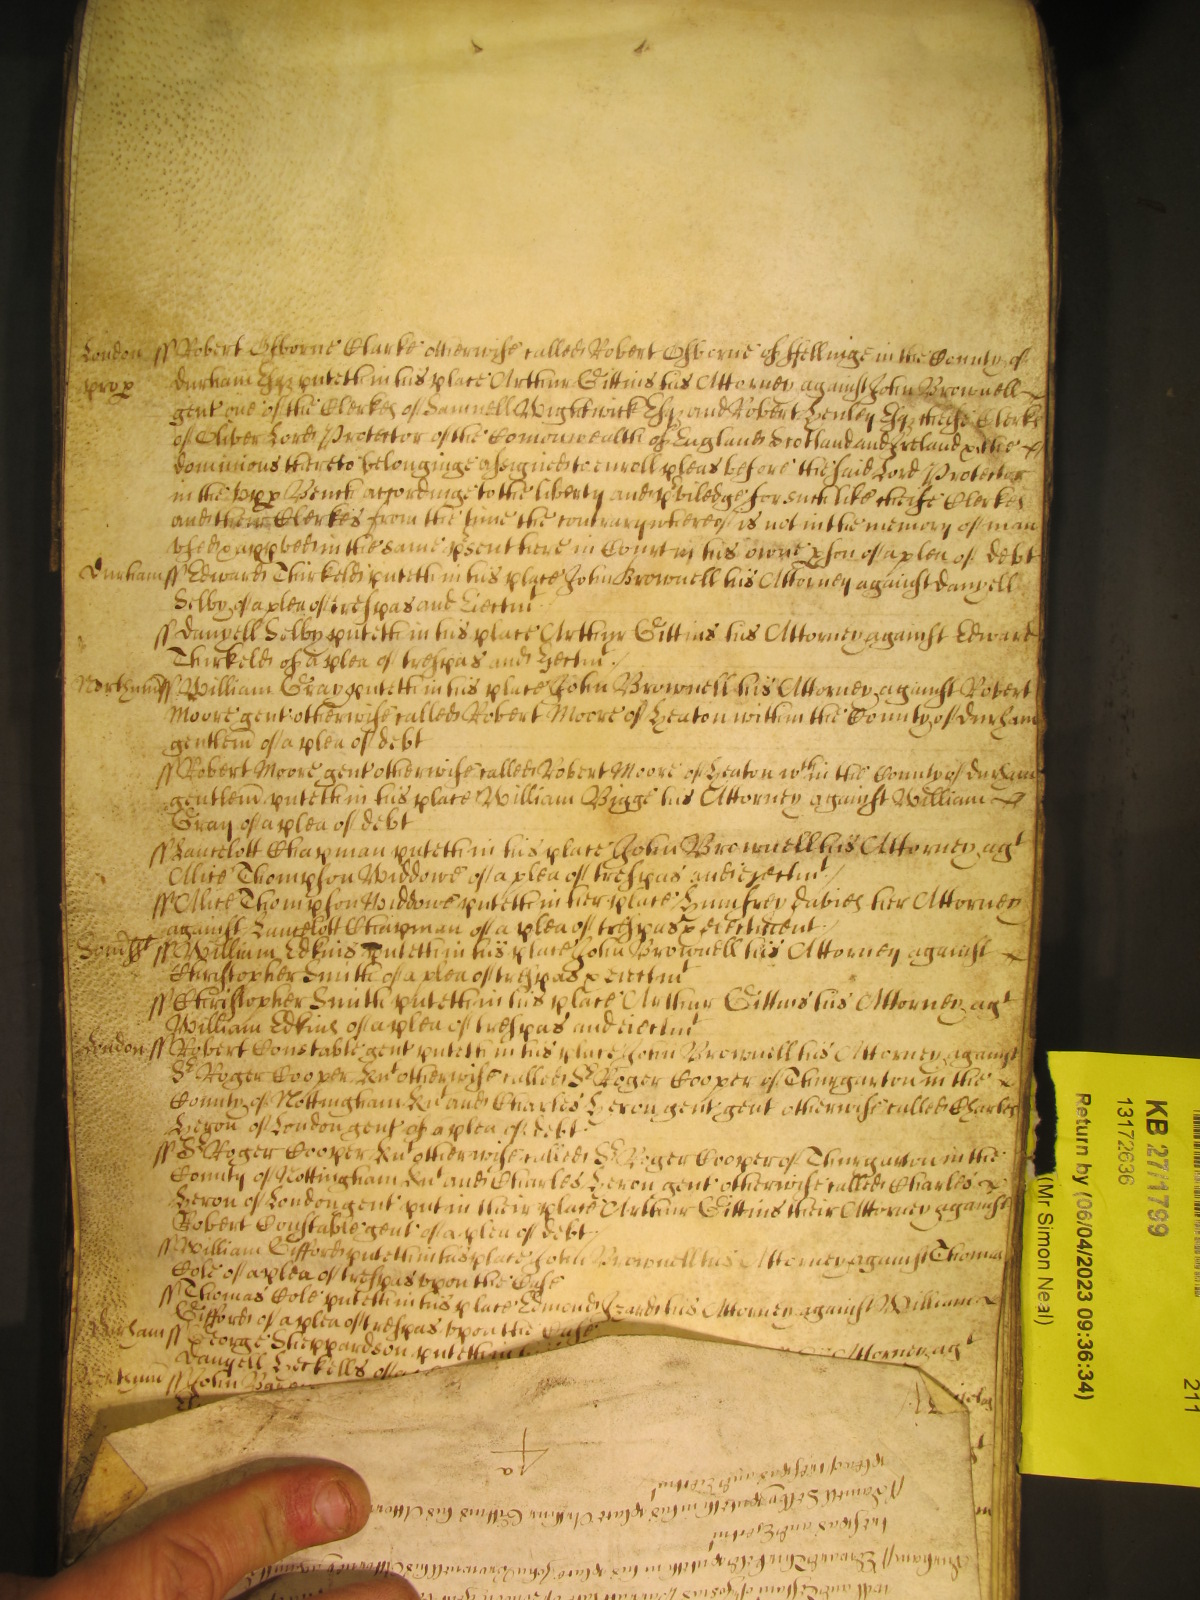 London ss Robert Osborne Clarke otherwise called Robert Osborne of in the County of
durham Esqr putteth in his place Arthur Gittins his Attorney against John Brownell
gent one of the Clerkes of Samuell Wightwick Esqr and Robert Henley Esqr cheife Clerke
of Oliver Lord Protector of the Comonwealth of England Scotland and Ireland & the
dominions thereto belonginge assigned to enroll pleas before the said Lord Protector
in the vpp Bench accordinge to the liberty and for such like cheife Clerkes
and their Clerkes from the time the contrary whereof is not in the memory of man
in the same here in Court in his owne pson of a plea of debt
durham ss Edward Thirkeld putteth in his place John Brownell his Attorney against danyell
Selby of a plea of trespas and Eiectmt
ss danyell Selby putteth in his place Arthur Gittins his Attorney against Edward
Thirkeld of a plea of trespas and Eiectmt
Northum ss William Gray putteth in his place John Brownell his Attorney against Robert
Moore gent otherwise called Robert Moore of Heaton within the County of durham
gentlem of a plea of debt
ss Robert Moore gent otherwise called Robert Moore of Heaton wthin the County of durham
gentlem putteth in his place William Bigge his Attorney against William
Gray of a plea of debt
ss Lancelott Chapman putteth in his place John Brownell his Attorney agt
Alice Thompson Widdowe of a plea of trespas and eiectmt
ss Alice Thompson Widdowe putteth in her place Humfrey davies her Attorney
against Lancelott Chapman of a plea of trespas & eiectment
ss William Edkins putteth in his place John Brownell his Attorney against
Christopher Smith of a plea of trespas & eiectmt
ss Christopher Smith putteth in his place Arthur Gittins his Attorney agt
William Edkins of a plea of trespas and eiectmt
London ss Robert Constable gent putteth in his place John Brownell his Attorney against
Sr Roger Cooper Knt otherwise called Sr Roger Cooper of Thurgarton in the
County of Nottingham Knt and Charles Heron gent gent otherwise called Charles
Heron of London gent of a plea of debt
ss Sr Roger Cooper Knt otherwise called Sr Roger Cooper of Thurgarton in the
County of Nottingham Knt and Charles Heron gent otherwise called Charles
Heron of London gent put in their place Arthur Gittins their Attorney against
Robert Constable gent of a plea of debt
ss William Gifford putteth in his place John Brownell his Attorney against Thomas
Cole of a plea of trespas vpon the Case
ss Thomas Cole putteth in his place Edmond Izard his Attorney against William
Gifford of a plea of trespas vpon the Case
durham ss George Sheppardson putteth in Attorney agt
Danyell of
ss John
4a
KB 27/1799
13172636
Return by (06/04/2023 09:36:34)
(Mr Simon Neal)
211